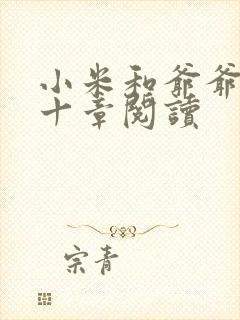 小米和爺爺
十章閱讀
宗青